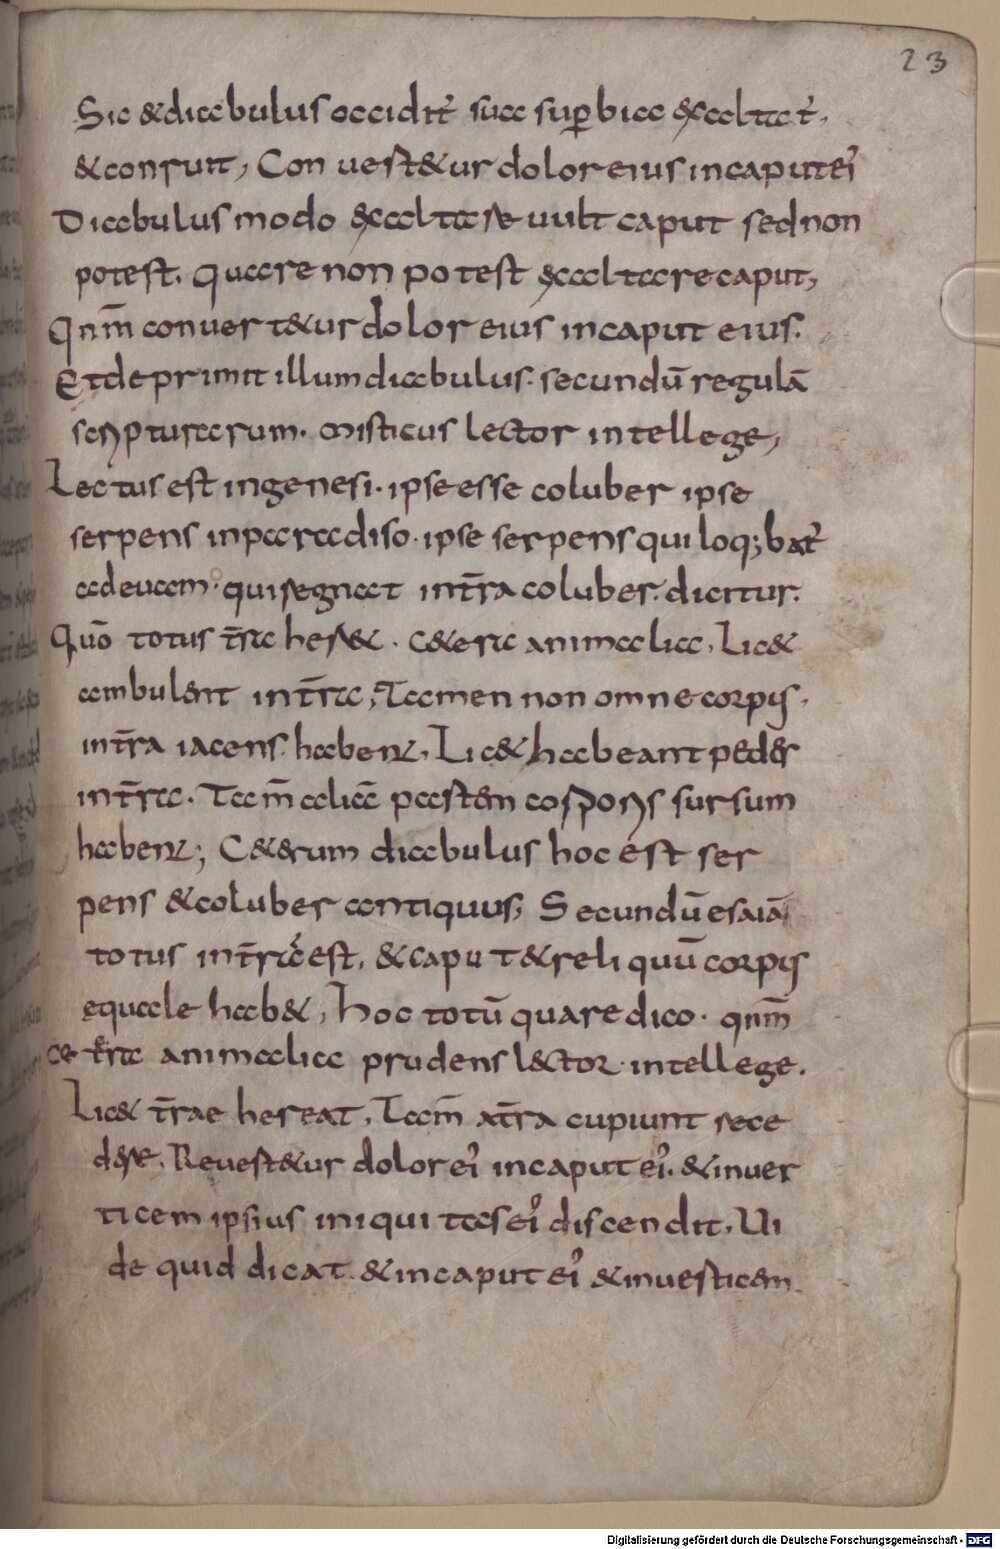 23
Sic & diabulus occidit̄ sua sup̱bia exaltat̄,
& conruit, Con vert&ur dolor eius in caput ei'
Diabulus modo exaltare vult caput sed non
potest. Quare non potest exaltare caput,
Qnm̄ convert&ur dolor eius in caput eius.
Et deprimit illum diabulus. secundū regulā
scripturarum. misticus lector intellege,
Lectus est in genesi. ipse esse coluber ipse
serpens in paradiso. ipse serpens qui loq;bat̄
ad evam. qui regnat in t̄ra coluber. dicitur.
Quō totus t̄rae her&. c&era animalia, Lic&
ambulent in t̄ra, Tamen non omne corpus.
in t̄ra iacens haben&, Lic& habeant pedes
in t̄ra. Tam̄ aliā partem corporis sursum
habent; C&erum diabulus hoc est ser
pens & coluber contiquus, Secundū esaiā
totus in t̄ra est, & caput & reliquū corpus
equale hab&, Hoc totū quare dico. qnm̄
cet̄ra animalia prudens lector intellege.
Lic& t̄rae hereat, Tam̄ a t̄ra cupiunt rece
dere, Revert&ur dolor ei' in caput ei'. & in ver
ticem ipsius iniquitas ei' discendit, Vi
de quid dicat & in caput ei' & in verticem
Digitalisierung gefördert durch die Deutsche Forschungsgemeinschaft - DFG